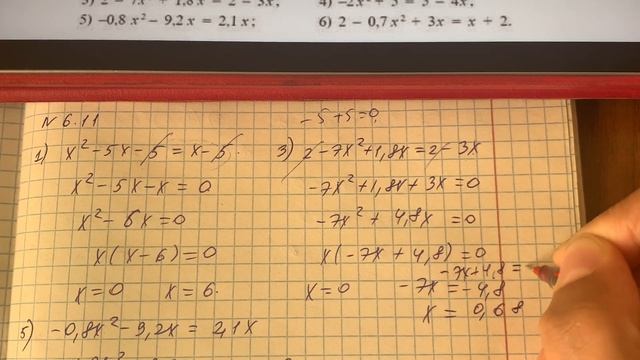 3) 2 − 7x² + 1,8x = 2 − 3x; 4) −2x² + 5 = 5 − 4x;
5) −0,8x² − 9,2x = 2,1x; 6) 2 − 0,7x² + 3x = x + 2.
N 6.11
−5+5=0
1) x² − 5x − 5 = x − 5.
x² − 5x − x = 0
x² − 6x = 0
x(x − 6) = 0
x = 0 x = 6.
3) 2 − 7x² + 1,8x = 2 − 3x
−7x² + 1,8x + 3x = 0
−7x² + 4,8x = 0
x(−7x + 4,8) = 0
−7x + 4,8 =
x = 0 −7x = −4,8
x = 0,68
5) −0,8x² − 9,2x = 2,1x